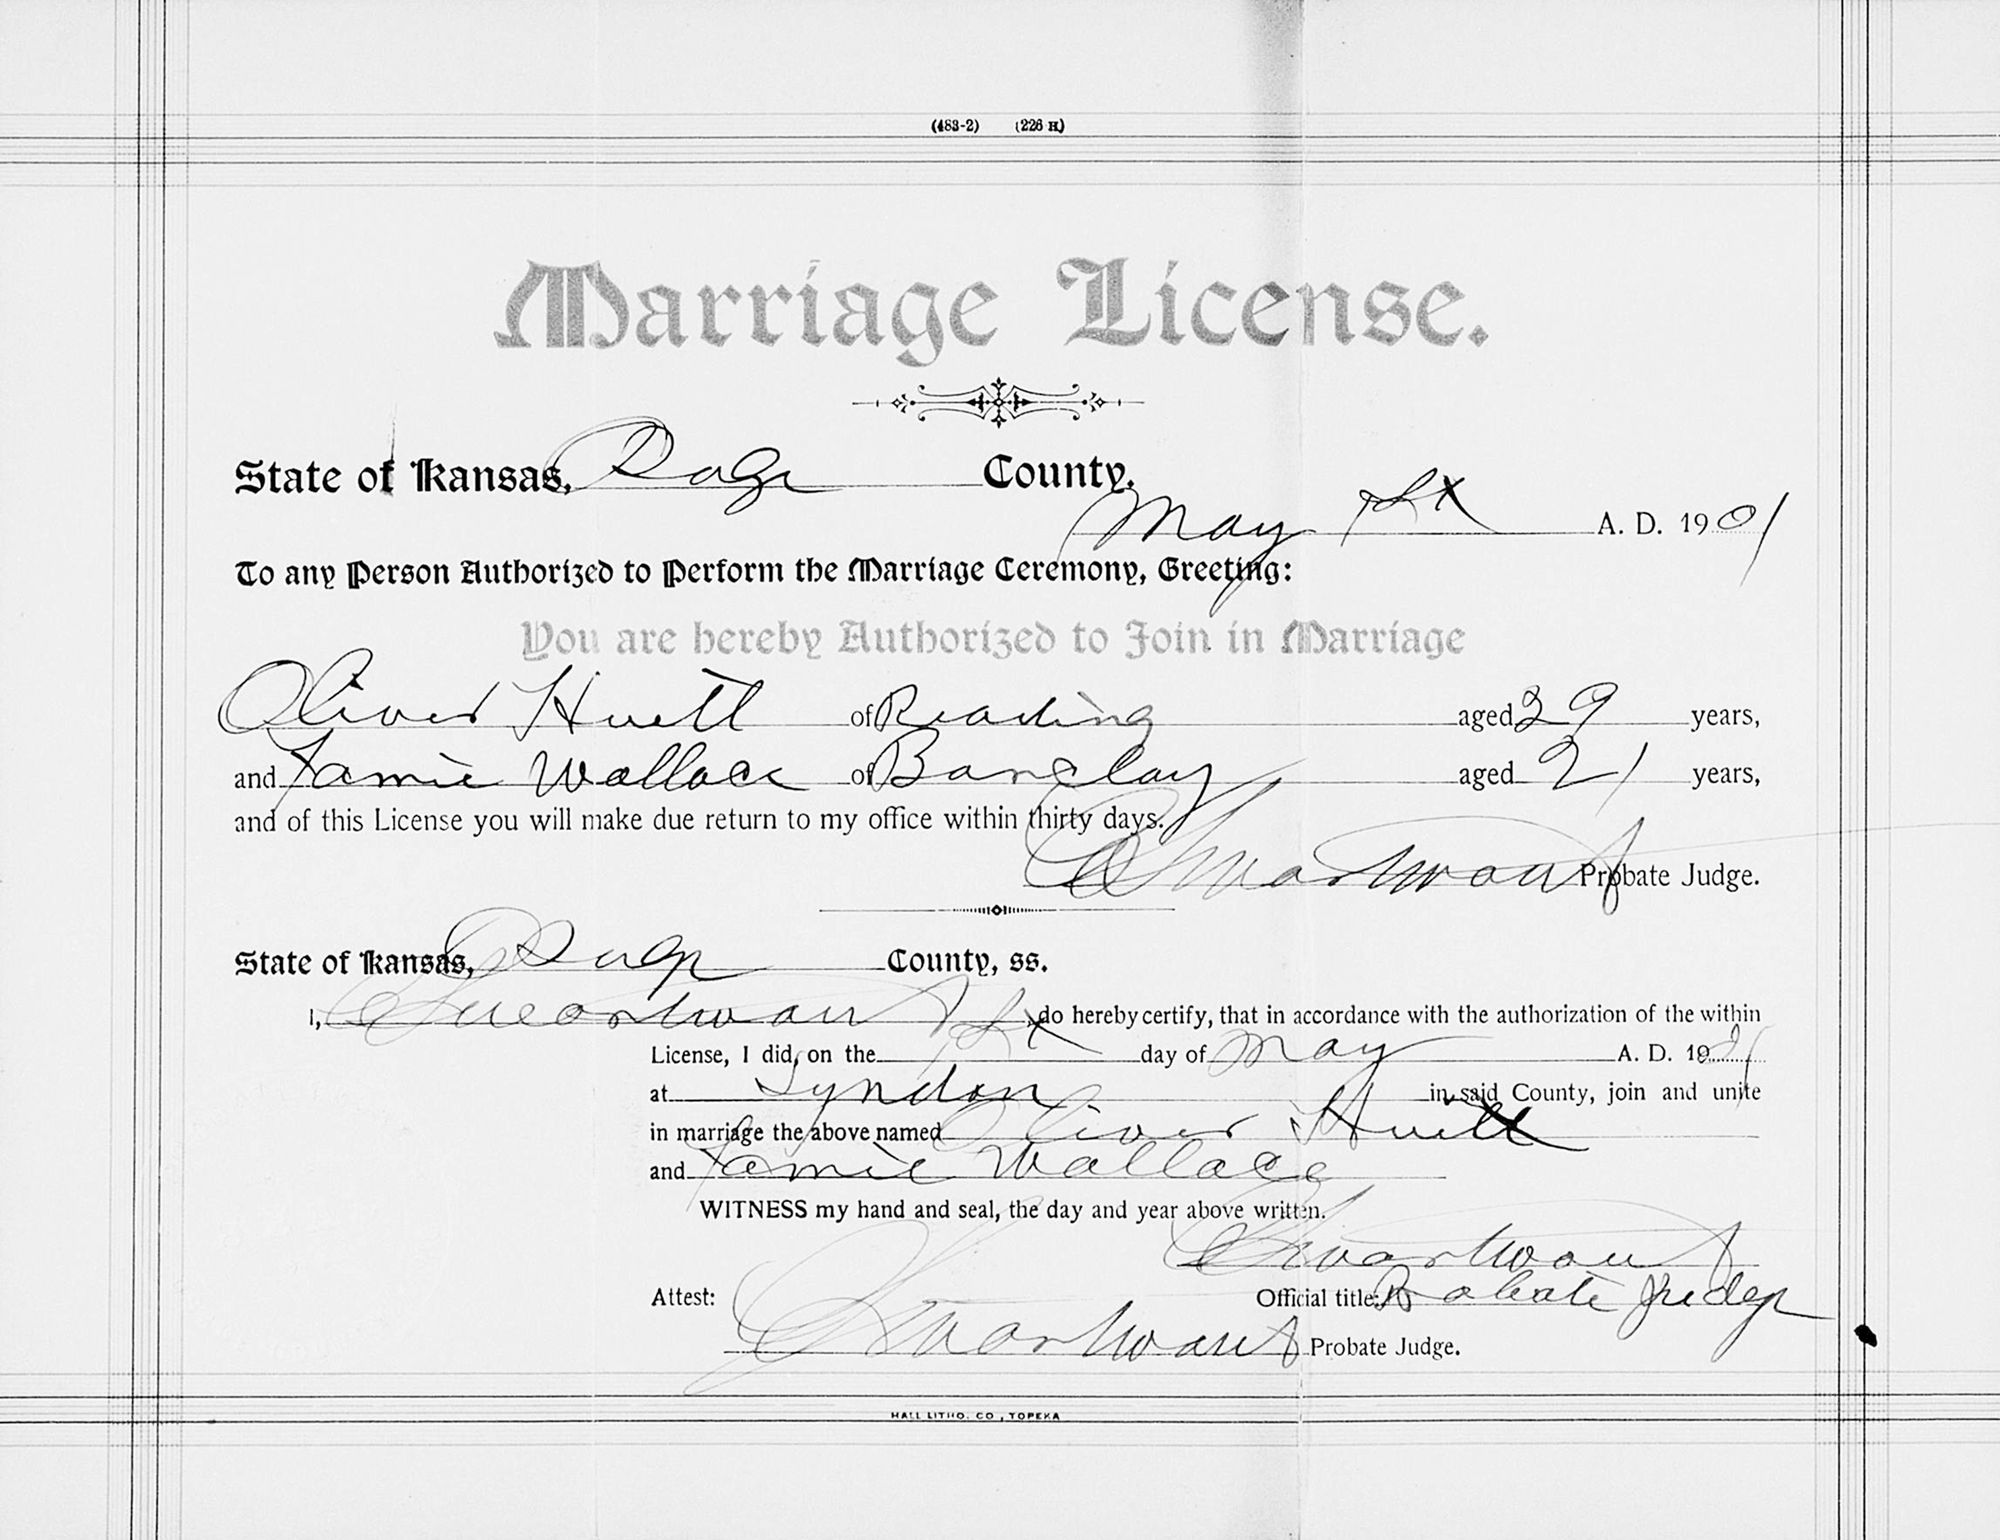 (483-2) (226 H)
Marriage License.
State of Kansas, Osage County.
May 1st A. D. 1901
To any Person Authorized to Perform the Marriage Ceremony, Greeting:
You are hereby Authorized to Join in Marriage
Oliver Huett of Reading aged 29 years,
and Jamie Wallace of Barclay aged 21 years,
and of this License you will make due return to my office within thirty days.
Probate Judge.
State of Kansas, Osage County, ss.
I, do hereby certify, that in accordance with the authorization of the within
License, I did, on the 1st day of May A. D. 1901
at Lyndon in said County, join and unite
in marriage the above named Oliver Huett
and Jamie Wallace
WITNESS my hand and seal, the day and year above written.
Attest: Official title: Probate Judge
Probate Judge.
HALL LITHO. CO., TOPEKA